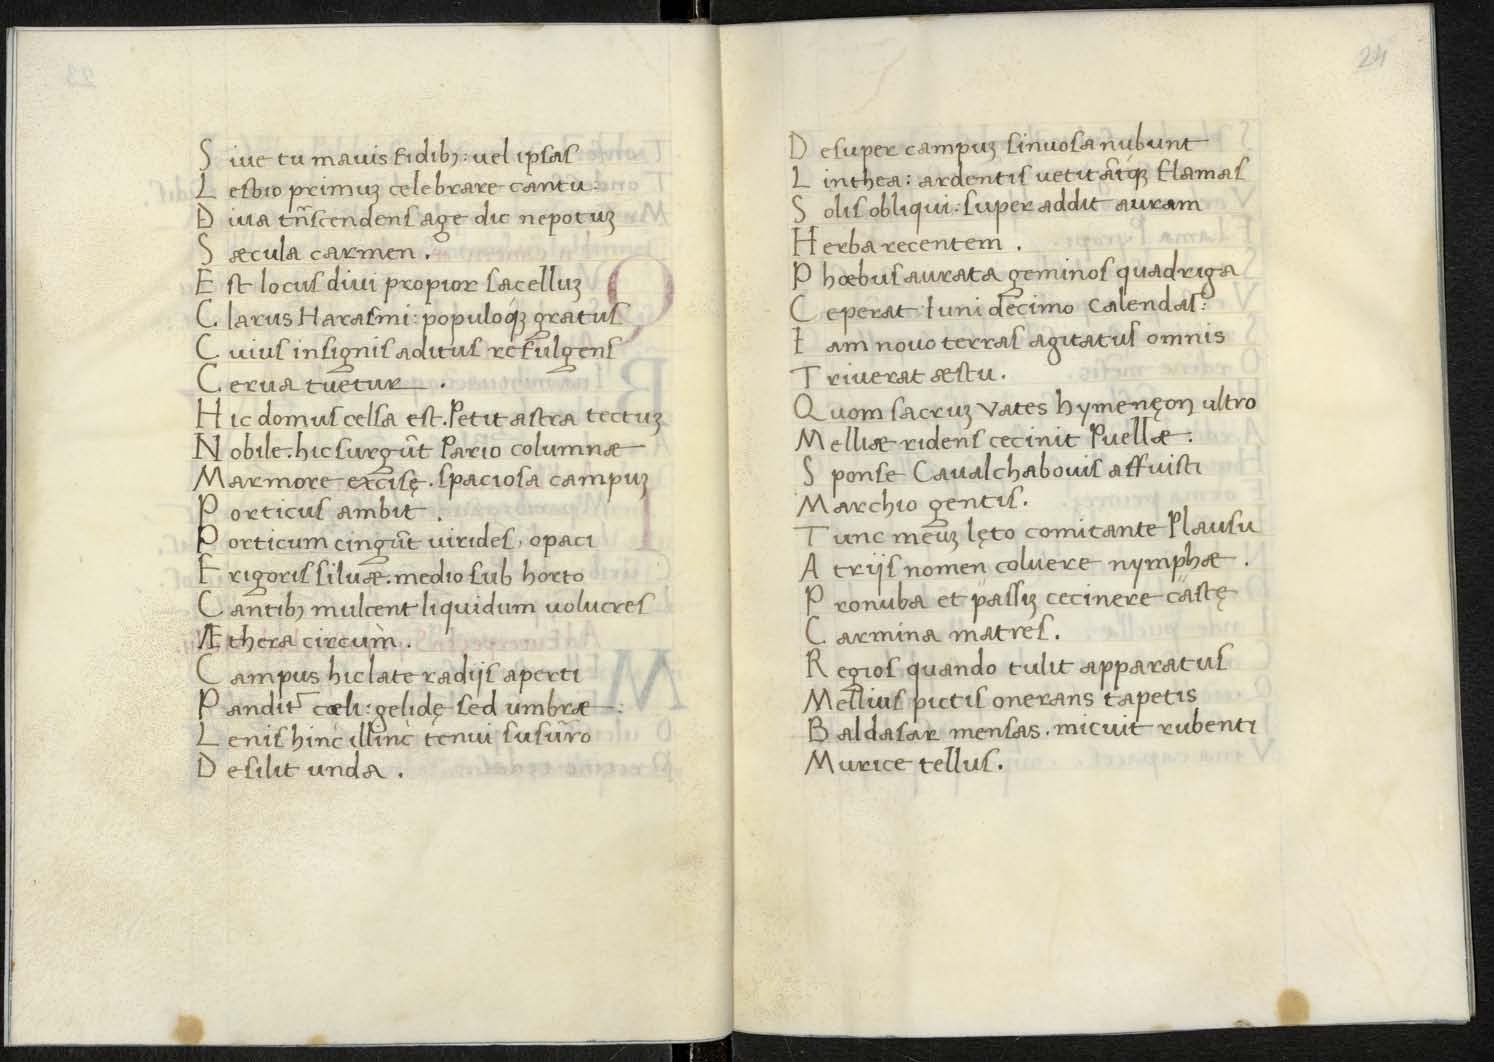 Siue tu mauis fidibꝫ: uel ipsas
Lesbio primuꝫ celebrare cantu:
Diua tr̃scendens age dic nepotuꝫ
Sæcula carmen.
Est locus diui propior sacelluꝫ
Clarus Harasmi: populoq́ꝫ gratus
Cuius insignis aditus refulgens
Cerua tuetur.
Hic domus celsa est. Petit astra tectuꝫ
Nobile. hic surgũt Pario columnæ
Marmore excisę. spaciosa campuꝫ
Porticus ambit.
Porticum cingũt uirides, opaci
Frigoris siluæ. medio sub horto
Cantibꝫ mulcent liquidum uolucres
Æthera circum.
Campus hic late radijs aperti
Pandit᷑ cœli: gelidę sed umbræ:
Lenis hinc illinc tenui susũro
Desilit unda.
24
Desuper campuꝫ sinuosa nubunt
Linthea: ardentis uetitãtqꝫ flamas
Solis obliqui: super addit auram
Herba recentem.
Phœbus aurata geminos quadriga
Ceperat: Iuni decimo calendas:
Iam nouo terras agitatus omnis
Triuerat æstu.
Quom sacruꝫ vates hymenęon ultro
Melliæ ridens cecinit Puellæ:
Sponse Caualchabouis affuisti
Marchio gentis.
Tunc meuꝫ lęto comitante Plausu
Atrijs nomen coluere nymphæ.
Pronuba et passiꝫ cecinere castę
Carmina matres.
Regios quando tulit apparatus
Mellius pictis onerans tapetis
Baldasar mensas. micuit rubenti
Murice tellus.